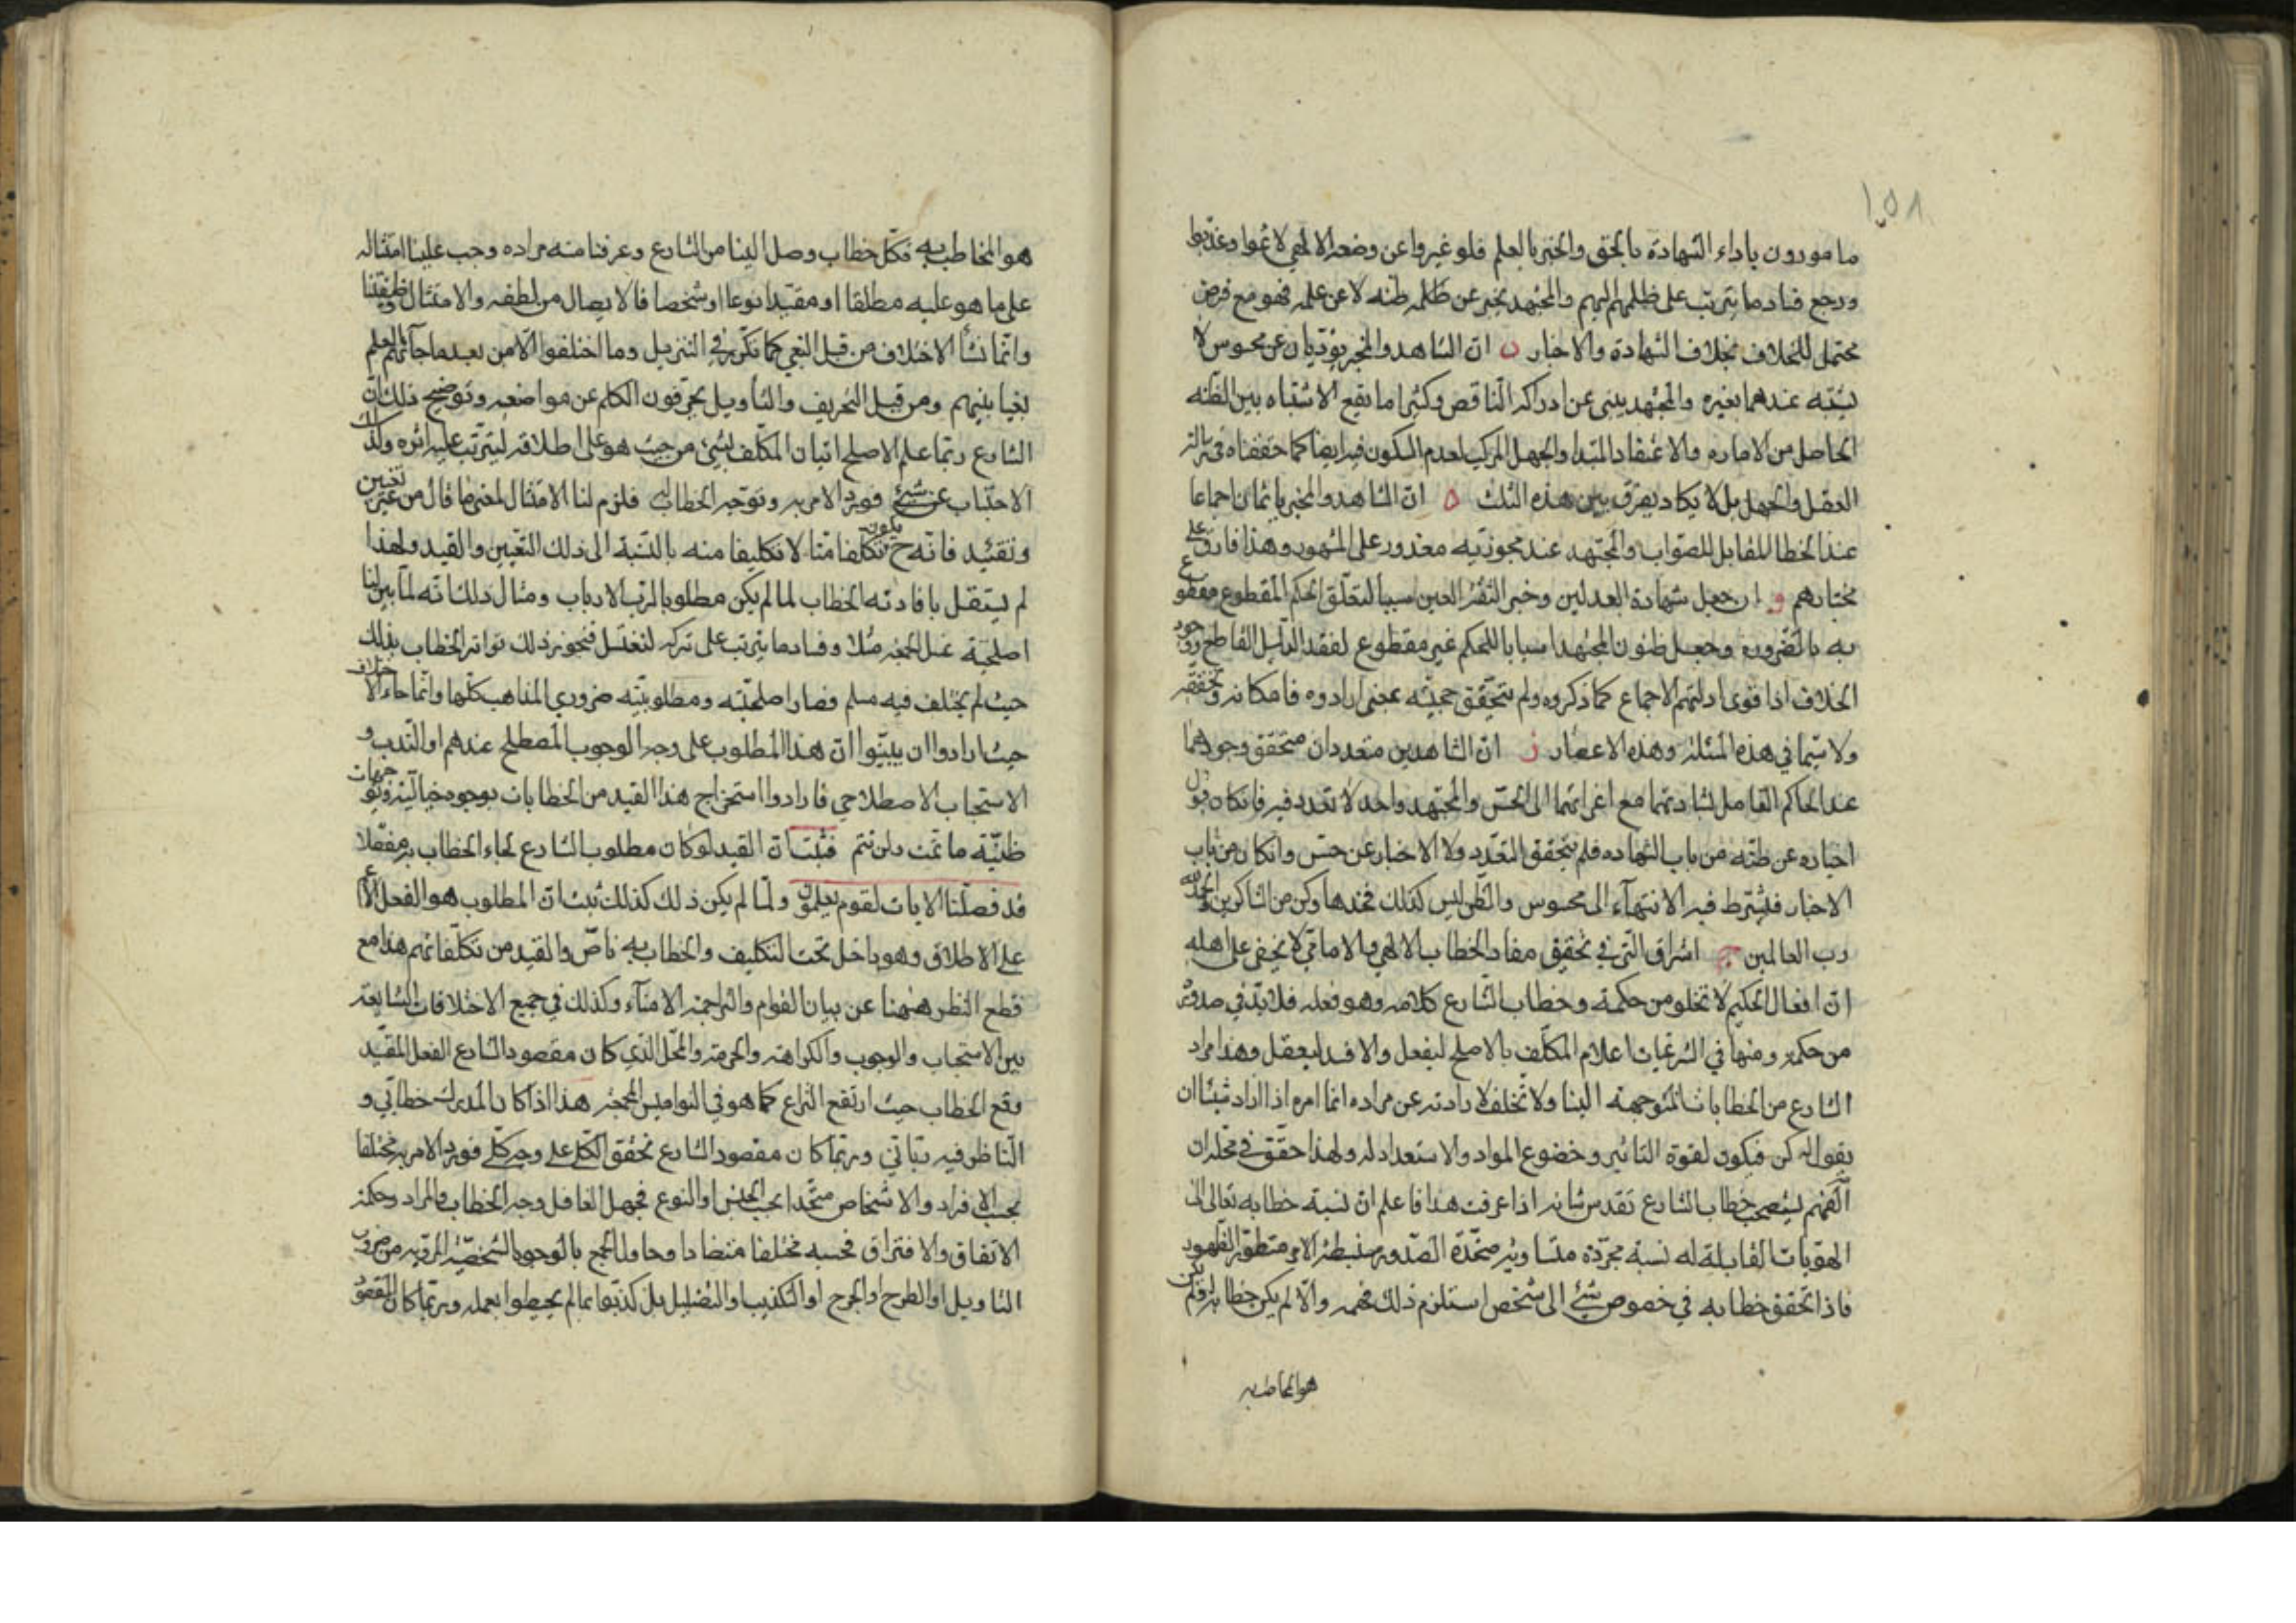 ١٥٨
مامورون باداء الشهادة بالحق والخبر بالعلم فلو غيروا عن وضعه الالهي لاثموا وعذبوا
ورجع فساد ما يترتب على ظلمهم اليهم والمجتهد يخبر عن ظنه لا عن علمه فهو مع فرض
محتمل للخلاف بخلاف الشهادة والاخبار ن ان الشاهد والمخبر يؤديان عن محسوس لا
يشتبه عندهما بغيره والمجتهد ينبئ عن ادراكه الناقص وكثيرا ما يقع الاشتباه بين الظنه
الحاصل من الاماره والاعتقاد المبتدا والجهل المركب لعدم السكون فيه ايضا كما حققناه في
العقل والجهل بل لا يكاد يفرق بين هذه الثلث ه ان الشاهد والمخبر ياثمان اجماعا
عند الخطا المقابل للصواب والمجتهد عند مجوزيه معذور على المشهور وهذا فارق على
مختارهم و ان جعل شهادة العدلين وخبر الثقة العين سببا لتعلق الحكم المقطوع مقطوع
به بالضرورة وجعل ظنون المجتهد اسبابا للحكم غير مقطوع لفقد الدليل القاطع ووجود
الخلاف اذا قوى ادلتهم الاجماع كما ذكروه ولم يتحقق حجيته بمعنى ارادوه فامكانه وتحققه
ولا سيما في هذه المسئلة وهذه الاعصار ز ان الشاهدين متعددان متحقق وجودهما
عند الحاكم الفاصل لشهادتهما مع اعزائهما الى الحس والمجتهد واحد لا تعدد فيه فان كان قبول
اخباره عن ظنه من باب الشهاده فلم يتحقق التعدد ولا الاخبار عن حس وان كان من باب
الاخبار فيشترط فيه الانتهاء الى محسوس والظن ليس كذلك فخذها وكن من الشاكرين والحمد لله
رب العالمين ج اشراق التي في تحقيق مفاد الخطاب الالهي والامامي لا يخفى على اهله
ان افعال الحكيم لا تخلو من حكمة وخطاب الشارع كلامه وهو فعله فلا بد في صدوره
من حكمة ومنها في الشرعيات اعلام المكلف بالاصلح ليفعل والافسد ليعقل وهذا مراد
الشارع من الخطابات المتوجهة الينا ولا تخلف لارادته عن مراده انما امره اذا اراد شيئا ان
يقول له كن فيكون لقوة التاثير وخضوع المواد والاستعداد له ولهذا حقق في محله ان
الفهم يستصحب خطاب الشارع تقدس شانه اذا عرفت هذا فاعلم ان نسبة خطابه تعالى الى
الهويات القابلة له نسبة مجردة متساوية متحدة الصدور منبسطة الامر متطورة الظهور
فاذا تحقق خطابه في خصوص شيء الى شخص استلزم ذلك فهمه والا لم يكن خطابه له فلم يكن
هو المخاطب به
هو المخاطب به فكل خطاب وصل الينا من الشارع وعرفنا منه مراده وجب علينا امتثاله
على ما هو عليه مطلقا او مقيدا نوعا او شخصا فالايصال من لطفه والامتثال وظيفتنا
وانما نشأ الاختلاف من قبل البغي كما تكرر في التنزيل وما اختلفوا الا من بعد ما جائهم العلم
بغيا بينهم ومن قبل التحريف والتأويل يحرفون الكلم عن مواضعه وتوضيح ذلك ان
الشارع ربما علم الاصلح اتيان المكلف بشيء من حيث هو على اطلاقه ليترتب عليه اثره وكذلك
الاجتناب عن شيء فورد الامر به وتوجه الخطاب اليه فلزم لنا الامتثال لمعنى ما قال من غير تعيين
وتقييد فانه ح يكون تكلفا منا لا تكليفا منه بالنسبة الى ذلك التعيين والقيد ولهذا
لم يستقل بافادته الخطاب لما لم يكن مطلوبا لرب الارباب ومثال ذلك انه لما بين لنا
اصلحية غسل الجمعة مثلا وفساد ما يترتب على تركه لنغتسل فنحوز ذلك تواتر الخطاب بذلك
حيث لم يختلف فيه مسلم فصار اصلحيته ومطلوبيته ضروري المذاهب كلها وانما جاء الاختلاف
حيث ارادوا ان يبينوا ان هذا المطلوب على وجه الوجوب المصطلح عندهم او الندب و
الاستحباب الاصطلاحي فارادوا استخراج هذا القيد من الخطابات بوجوه خيالية وتوجهات
ظنية ما تمت ولن تتم فثبت ان القيد لو كان مطلوب الشارع لجاء الخطاب به مفصلا
قد فصلنا الايات لقوم يعلمون ولما لم يكن ذلك كذلك ثبت ان المطلوب هو الفعل الاعم
على الاطلاق وهو داخل تحت التكليف والخطاب به ناص والقيد من تكلفاتهم هذا مع
قطع النظر ههنا عن بيان القوام والتراجمة الامناء وكذلك في جميع الاختلافات الشايعة
بين الاستحباب والوجوب والكراهة والحرمة والمحل الذي كان مقصود الشارع الفعل المقيد
وقع الخطاب حيث ارتفع النزاع كما هو في النواميس المجمعة هذا اذا كان المدرك خطابي و
الناظر فيه بياني وربما كان مقصود الشارع تحقق الكل على وجه كلي فورد الامر به مختلفا
بحسب الافراد والاشخاص متحدا بحسب الجنس او النوع فجهل الغافل وجه الخطاب والمراد وحكمة
الاتفاق والافتراق فحسبه مختلفا متضادا وحاول الجمع بالوجوه الشخصية المرقية من ضروب
التاويل او الطرح والجرح او التكذيب والتضليل بل كذبوا بما لم يحيطوا بعلمه وربما كان المقصود